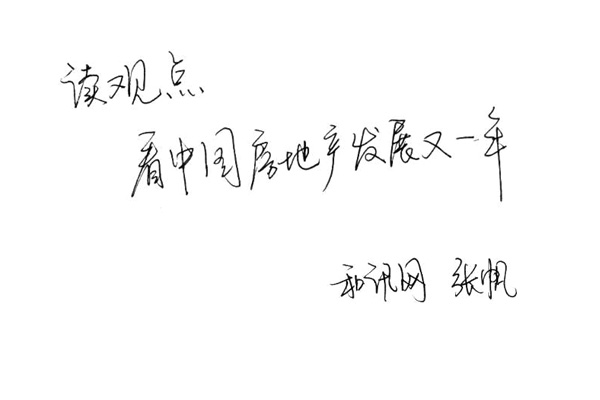 读观点
看中国房地产发展又一年
和讯网 张帆